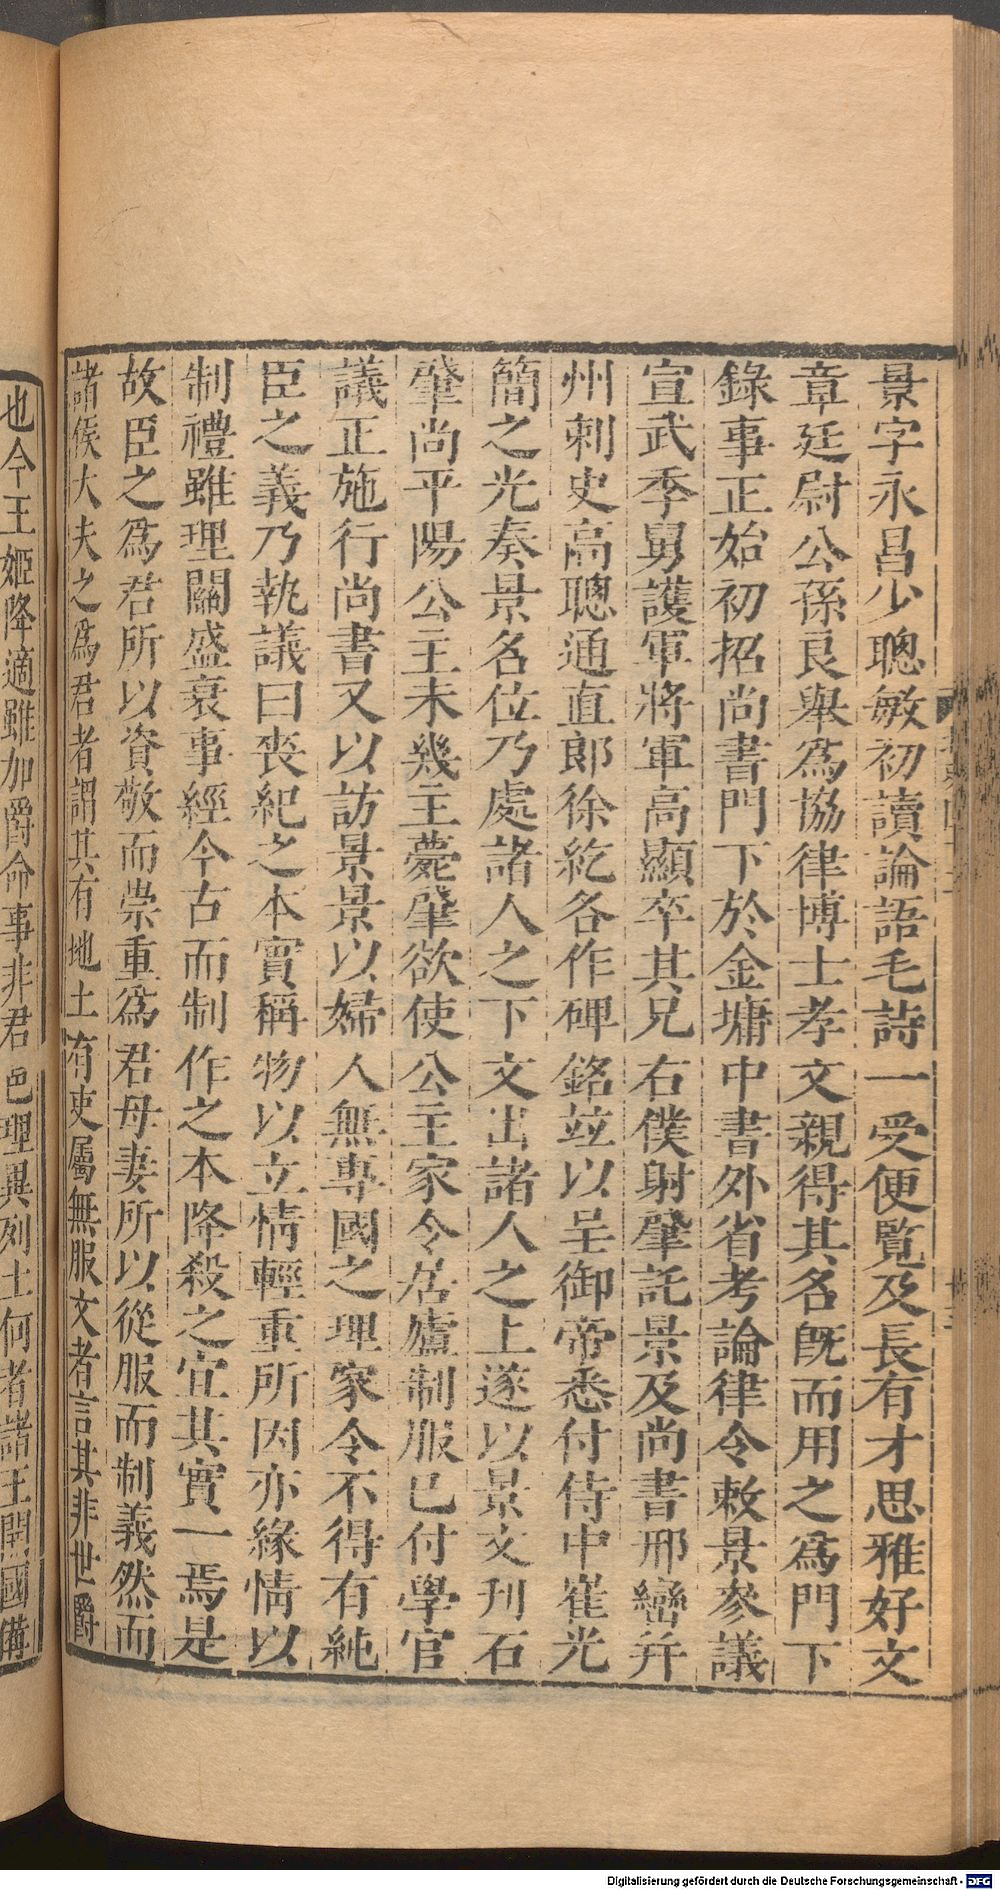 景字永昌少聰敏初讀論語毛詩一受便覧及長有才思雅好文
章廷尉公孫良舉為協律博士孝文親得其名既而用之為門下
錄事正始初招尚書門下於金墉中書外省考論律令敕景參議
宣武季舅護軍將軍高顯卒其兄右僕射肇託景及尚書邢巒并
州刺史高聰通直郎徐紇各作碑銘竝以呈御帝悉付侍中崔光
簡之光奏景名位乃處諸人之下文出諸人之上遂以景文刊石
肇尚平陽公主未幾主薨肇欲使公主家令居廬制服已付學官
議正施行尚書又以訪景景以婦人無專國之理家令不得有純
臣之義乃執議曰喪紀之本實稱物以立情輕重所因亦緣情以
制禮雖理關盛衰事經今古而制作之本降殺之宜其實一焉是
故臣之為君所以資敬而崇重為君母妻所以從服而制義然而
諸侯大夫之為君者謂其有地土有吏屬無服文者言其非世爵
也今王姬降適雖加爵命事非君邑理異列土何者諸王開國備
Digitalisierung gefördert durch die Deutsche Forschungsgemeinschaft - DFG